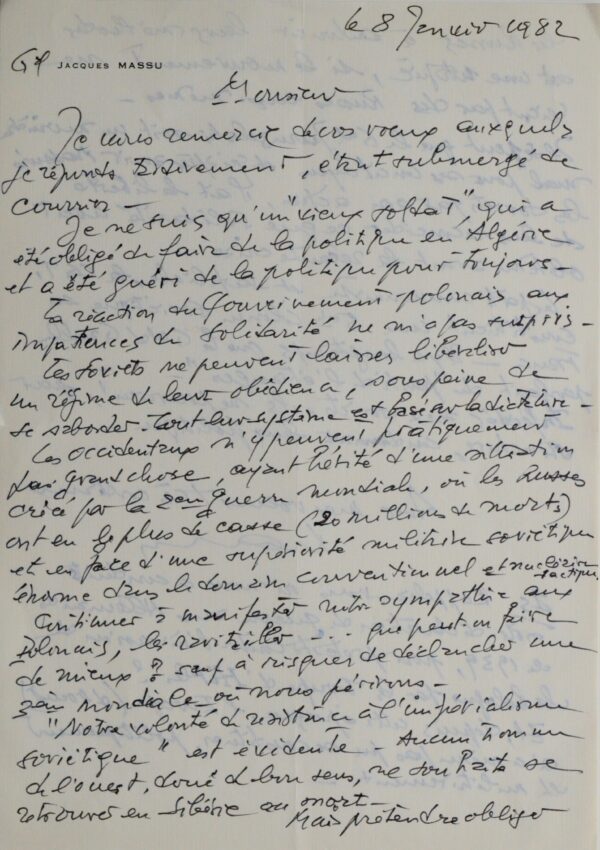 le 8 Janvier 1982
Gl JACQUES MASSU
Monsieur
Je vous remercie de vos voeux auxquels
je réponds tardivement, étant submergé de
courrier -
Je ne suis qu'un "vieux soldat", qui a
été obligé de faire de la politique en Algérie
et a été guéri de la politique pour toujours -
La réaction du Gouvernement polonais aux
impatiences de Solidarité ne m'a pas surpris -
Les Soviets ne peuvent laisser libéraliser
un régime de leur obédience, sous peine de
se saborder. Tout leur système est basé sur la dictature -
Les occidentaux n'y peuvent pratiquement
pas grand chose, ayant hérité d'une situation
créée par la 2ème guerre mondiale, où les Russes
ont eu le plus de casse (20 millions de morts)
et en face d'une supériorité militaire soviétique
énorme dans le domaine conventionnel et nucléaire
tactique.
Continuer à manifester notre sympathie aux
Polonais, les ravitailler --- que peut-on faire
de mieux ? sauf à risquer de déclancher une
3ème mondiale où nous périrons -
"Notre volonté de résistance à l'impérialisme
soviétique" est évidente - Aucun homme
de l'ouest, doué de bon sens, ne souhaite se
retrouver en Sibérie ou mort -
Mais prétendre obliger